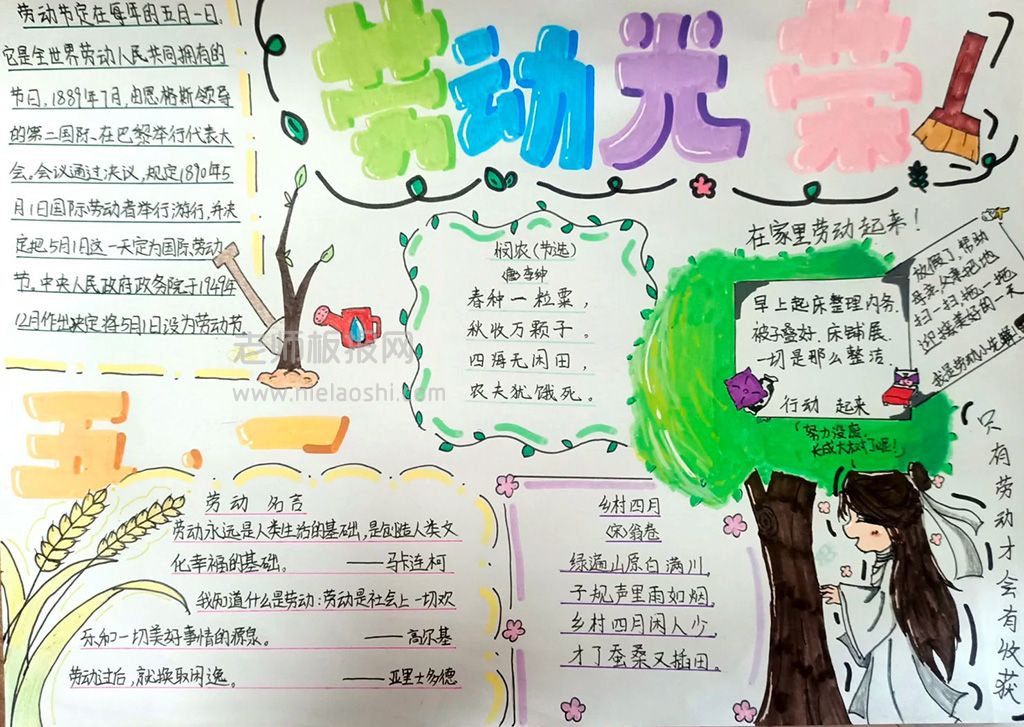 劳动光荣
劳动节定在每年的五月一日。
它是全世界劳动人民共同拥有的
节日，1889年7月，由恩格斯领导
的第二国际、在巴黎举行代表大
会。会议通过决议，规定1890年5
月1日国际劳动者举行游行，并决
定把5月1日这一天定为国际劳动
节。中央人民政府政务院于1949年
12月作出决定将5月1日设为劳动节
五.一
悯农（节选）
唐 李绅
春种一粒粟，
秋收万颗子。
四海无闲田，
农夫犹饿死。
在家里劳动起来！
早上起床整理内务.
被子叠好.床铺展.
一切是那么整洁.
行动 起来
放假了，帮助
母亲父亲把地
扫一扫，拖一拖
迎接美好的一天
我是劳动小
努力浇灌.
长成大树了喔！
劳动 名言
劳动永远是人类生活的基础，是创造人类文
化幸福的基础。 ——马卡连柯
我知道什么是劳动：劳动是社会上一切欢
乐和一切美好事情的源泉。 ——高尔基
劳动过后，就换取闲逸。 ——亚里士多德
乡村四月
（宋）翁卷
绿遍山原白满川，
子规声里雨如烟。
乡村四月闲人少，
才了蚕桑又插田。
只有劳动才会有收获
老师板报网
www.nielaoshi.com